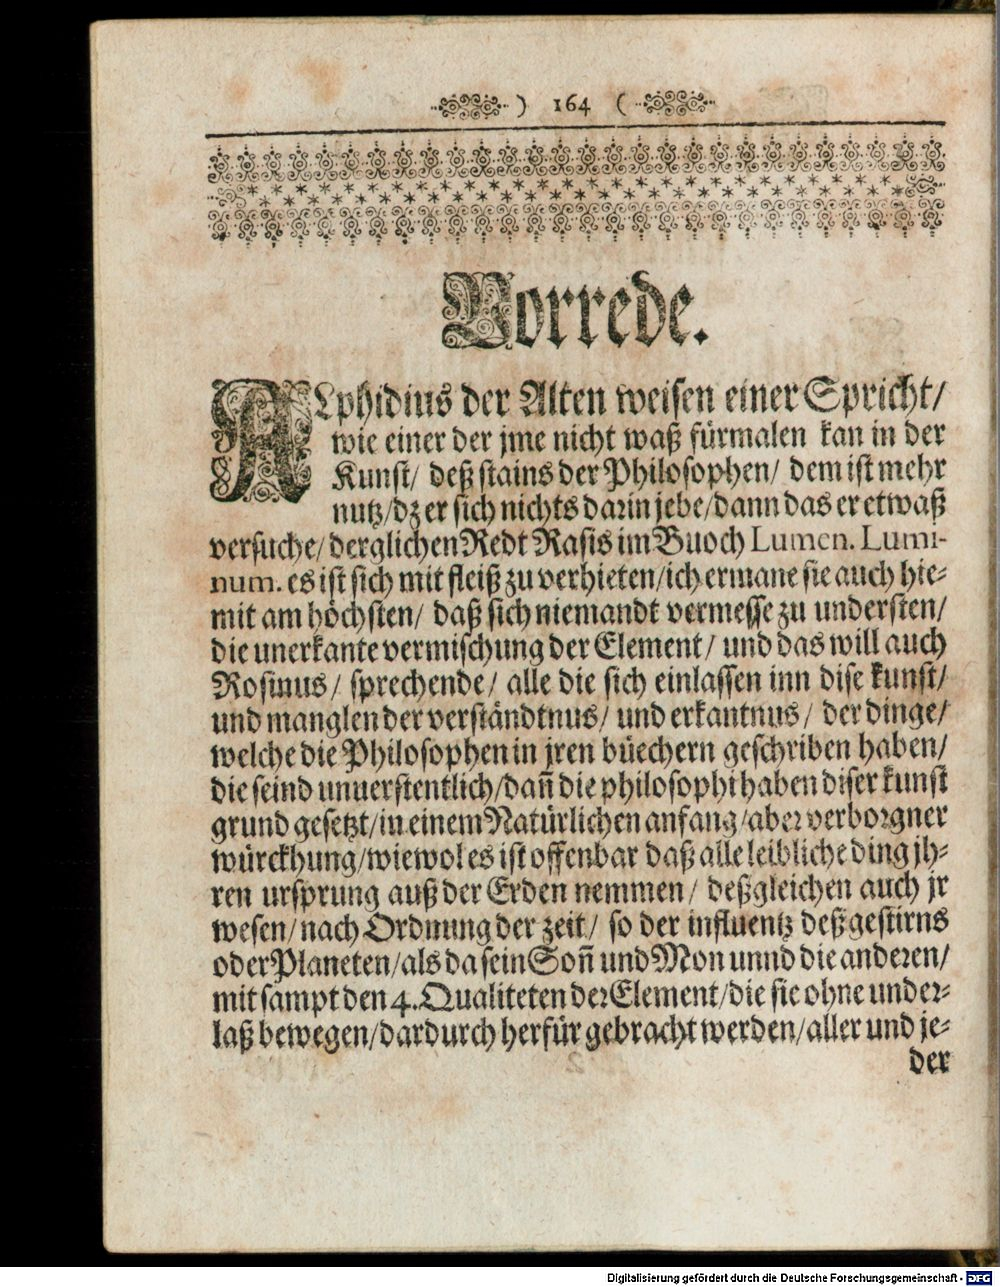 ) 164 (
Vorrede.
ALphidius der Alten weisen einer Spricht/
wie einer der jme nicht waß fürmalen kan in der
Kunst/ deß stains der Philosophen/ dem ist mehr
nutz/dz er sich nichts darin jebe/dann das er etwaß
versuche/ derglichen Redt Rasis im Buoch Lumen. Lumi-
num. es ist sich mit fleiß zu verhieten/ich ermane sie auch hie-
mit am höchsten/ daß sich niemandt vermesse zu understen/
die unerkante vermischung der Element/ und das will auch
Rosinus/ sprechende/ alle die sich einlassen inn dise kunst/
und manglen der verständtnus/ und erkantnus/ der dinge/
welche die Philosophen in jren büechern geschriben haben/
die seind unuerstentlich/dañ die philosophi haben diser kunst
grund gesetzt/in einem Natürlichen anfang/aber verborgner
würckhung/wiewol es ist offenbar daß alle leibliche ding jh-
ren ursprung auß der Erden nemmen/ deßgleichen auch jr
wesen/nach Ordnung der zeit/ so der influentz deß gestirns
oder Planeten/als da sein Soñ und Mon unnd die anderen/
mit sampt den 4. Qualiteten der Element/die sie ohne under-
laß bewegen/dardurch herfür gebracht werden/aller und je-
der
Digitalisierung gefördert durch die Deutsche Forschungsgemeinschaft - DFG